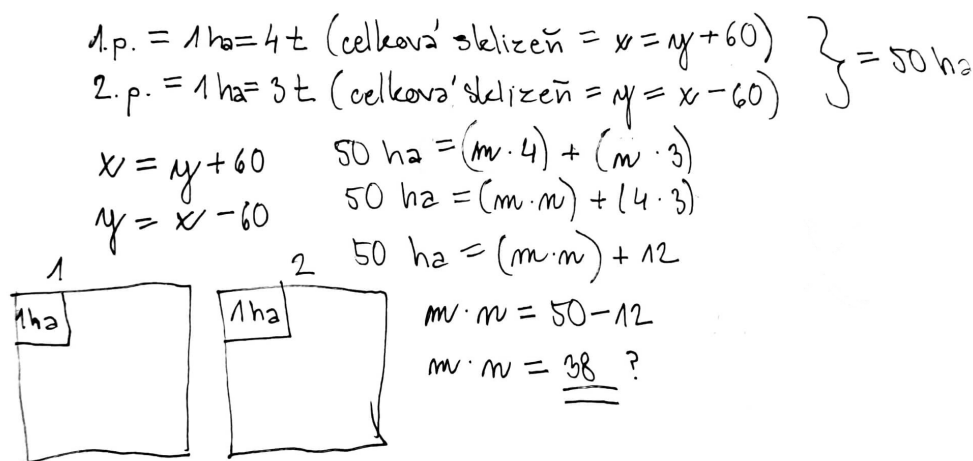 1.p. = 1ha=4t (celková sklizeň = x=y+60) } = 50 ha
2.p. = 1ha=3t (celková sklizeň = y = x-60)
x = y+60
y = x-60
50 ha = (m·4) + (n·3)
50 ha = (m·n) + (4·3)
50 ha = (m·n) + 12
m·n = 50-12
m·n = 38 ?
1
1ha
2
1ha